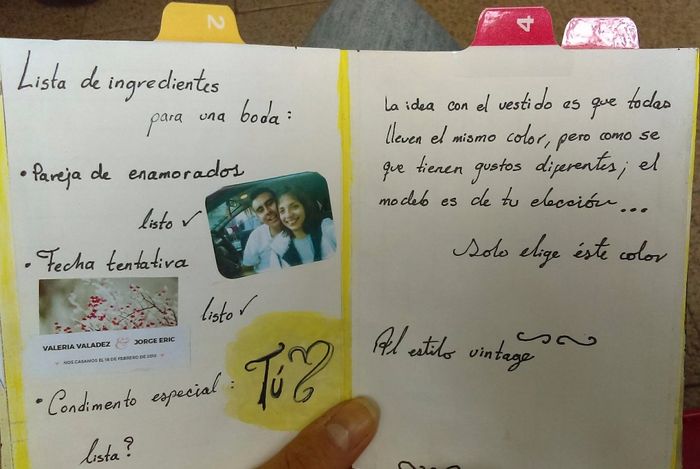 2
4
Lista de ingredientes
para una boda:
• Pareja de enamorados
listo ✓
• Fecha tentativa
listo ✓
VALERIA VALADEZ & JORGE ERIC
NOS CASAMOS EL 18 DE FEBRERO DE
• Condimento especial: Tú
lista?
La idea con el vestido es que todas
lleven el mismo color, pero como se
que tienen gustos diferentes; el
modelo es de tu elección...
Solo elige éste color
Al estilo vintage